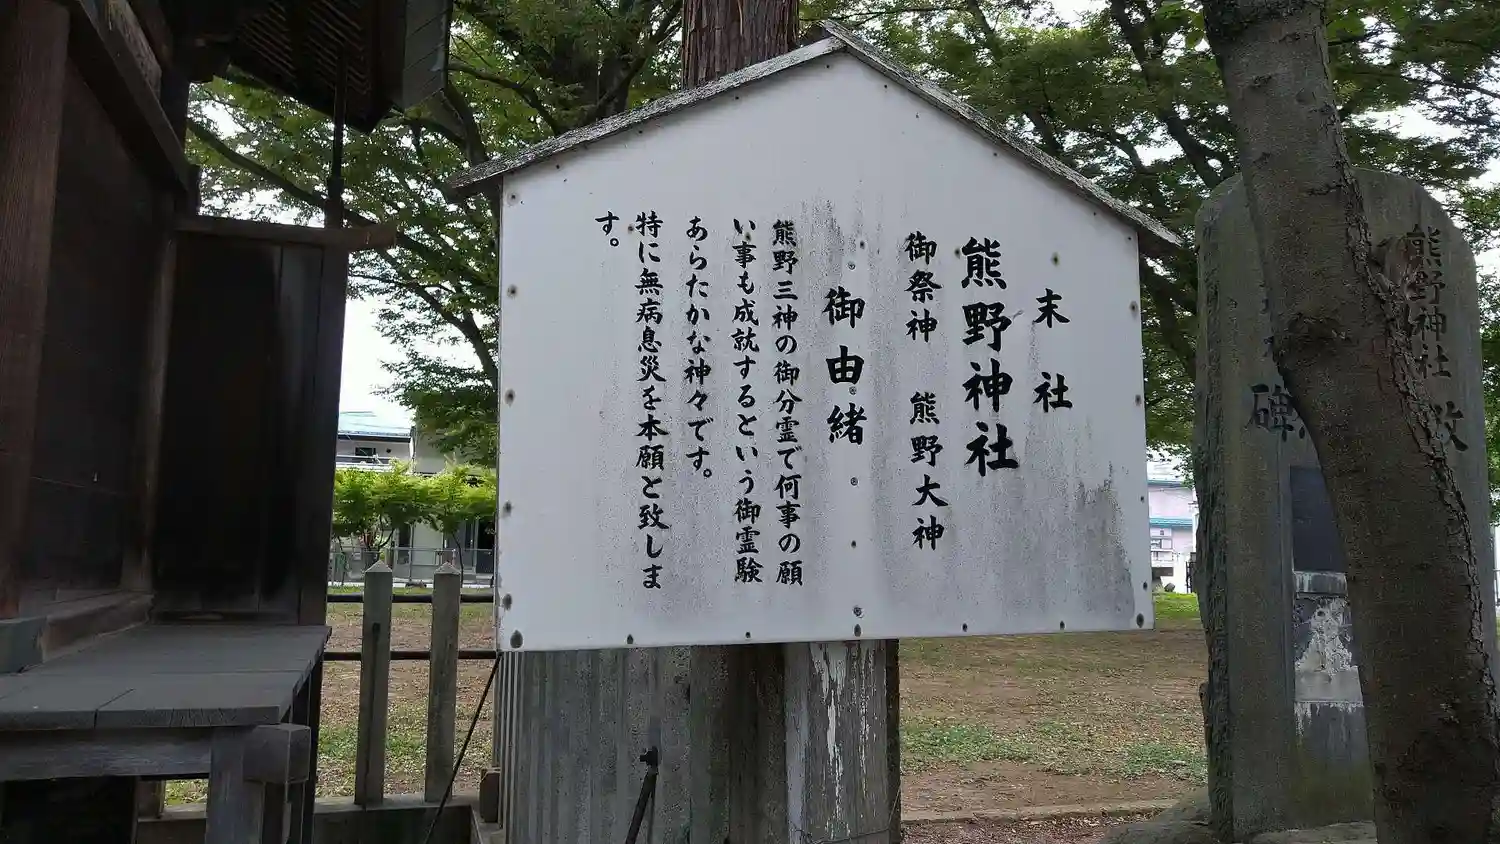 末社
熊野神社
御祭神　熊野大神
御由緒
熊野三神の御分霊で何事の願
い事も成就するという御霊験
あらたかな神々です。
特に無病息災を本願と致しま
す。
熊野神社
碑